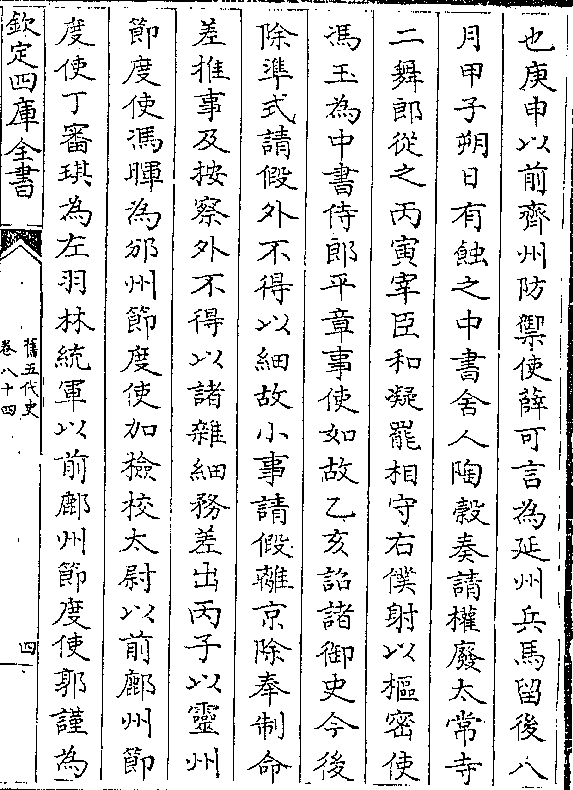 也庚申以前齊州防禦使薛可言為延州兵馬留後八
月甲子朔日有蝕之中書舍人陶縠奏請權廢太常寺
二舞郎從之丙寅宰臣和凝罷相守右僕射以樞密使
馮玉為中書侍郎平章事使如故乙亥詔諸御史今後
除準式請假外不得以細故小事請假離京除奉制命
差推事及按察外不得以諸雜細務差出丙子以靈州
節度使馮暉為邠州節度使加檢校太尉以前鄜州節
度使丁審琪為左羽林統軍以前鄜州節度使郭謹為
欽定四庫全書
舊五代史
卷八十四
四